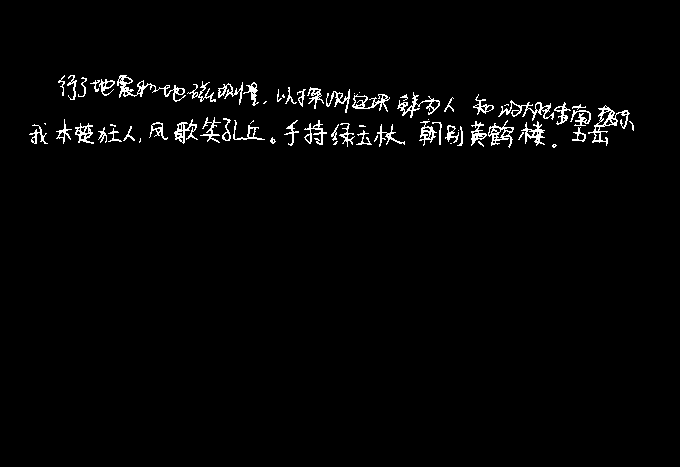 行了地震和地磁测量,以探测这块鲜为人知的大陆
我本楚狂人,凤歌笑孔丘。手持绿玉杖,朝别黄鹤楼。五岳